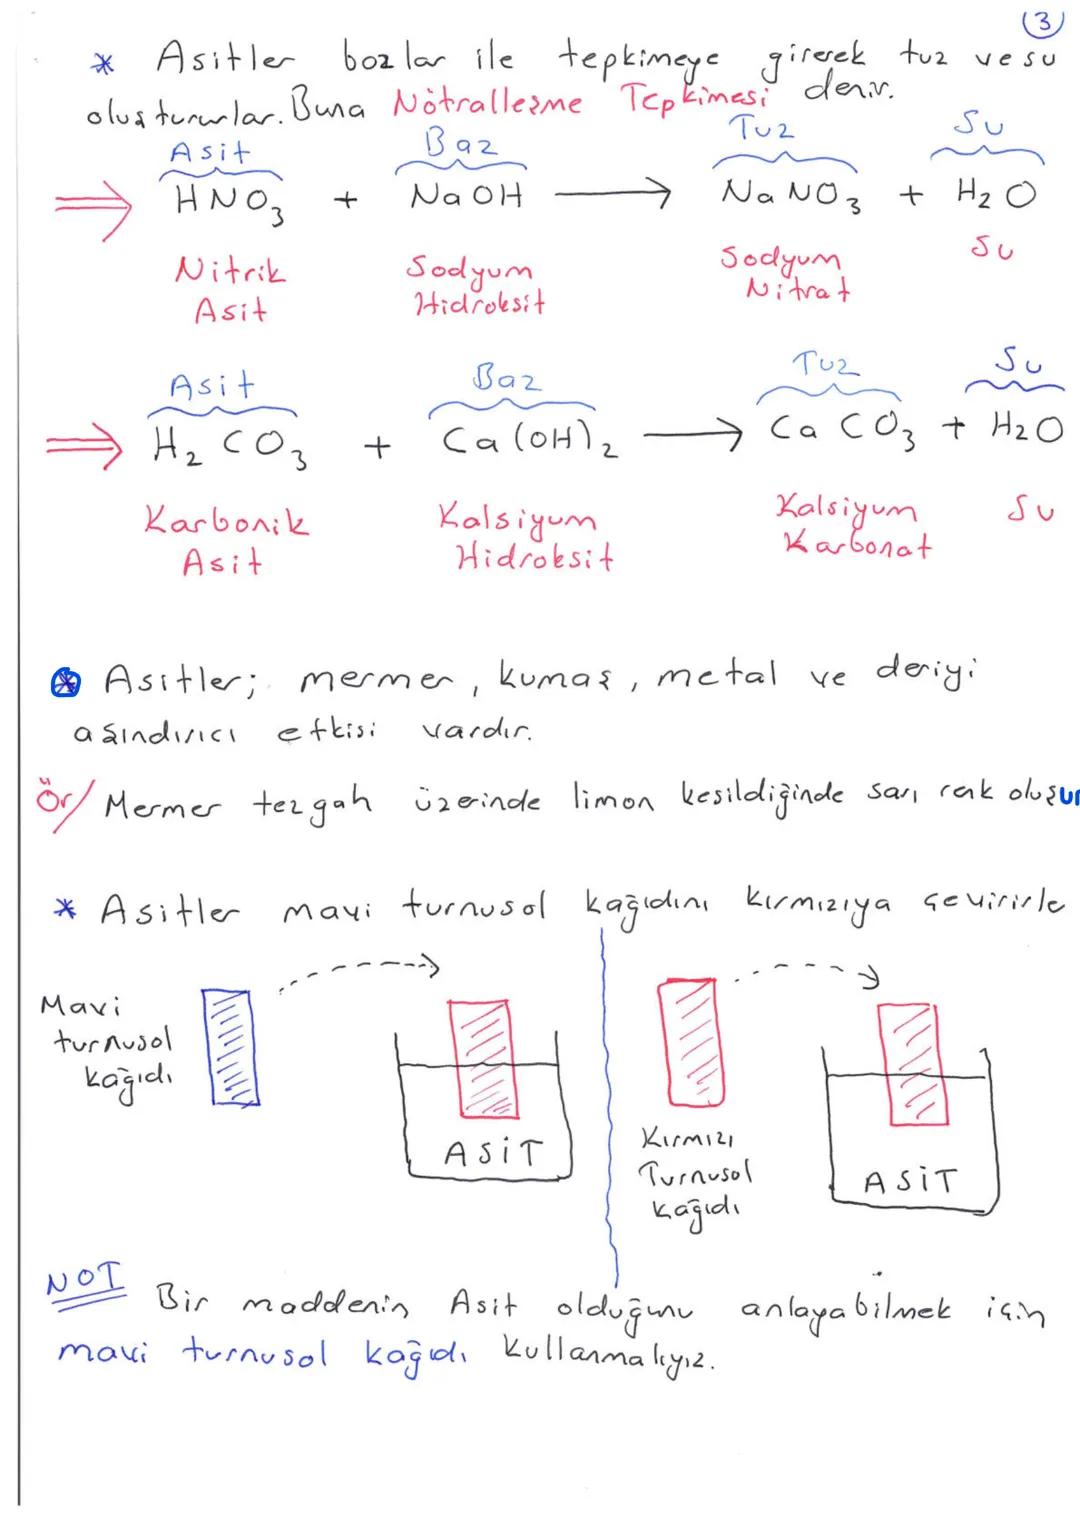 3
* Asitler bazlar ile tepkimeye girerek tuz ve su
oluştururlar. Buna Nötralleşme Tepkimesi denir.
Asit Baz Tuz Su
HNO₃ + NaOH → NaNO₃ + H₂O
Nitrik Sodyum Sodyum Su
Asit Hidroksit Nitrat
Asit Baz Tuz Su
H₂CO₃ + Ca(OH)₂ → CaCO₃ + H₂O
Karbonik Kalsiyum Kalsiyum Su
Asit Hidroksit Karbonat
* Asitler; mermer, kumaş, metal ve deriyi
aşındırıcı etkisi vardır.
Ör/ Mermer tezgah üzerinde limon kesildiğinde sarı renk oluşur
* Asitler mavi turnusol kağıdını kırmızıya çevirirle
Mavi
turnusol
kağıdı
ASİT
Kırmızı
Turnusol
kağıdı
ASİT
NOT Bir maddenin Asit olduğunu anlayabilmek için
mavi turnusol kağıdı kullanmalıyız.